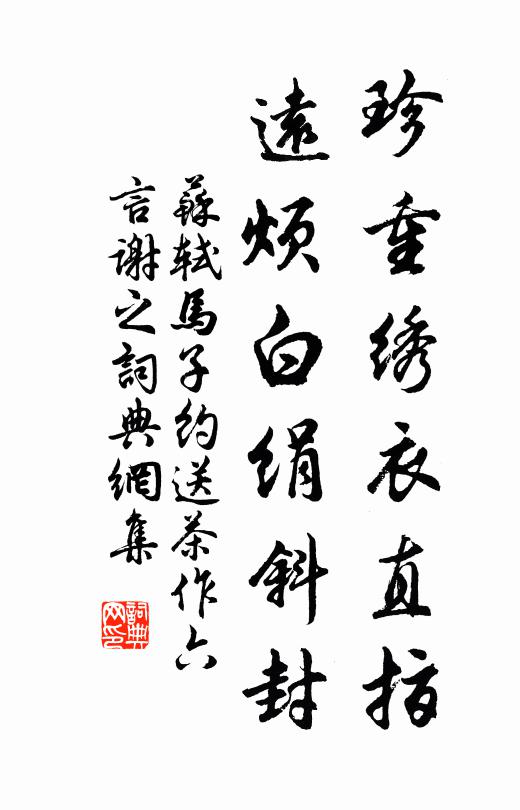 珍重綉衣直指
遠煩白絹斜封
蘇軾馬子約送茶作六
言謝之詞典網集
詞典
网印